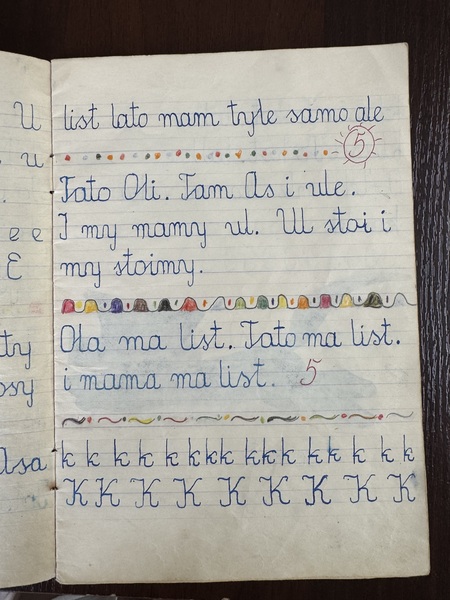 U
u
e e
E
ty
osy
Asa
list lato mam tyle samo ale
5
Tato Oli. Tam As i ule.
I my mamy ul. Ul stoi i
my stoimy.
Ola ma list. Tato ma list.
i mama ma list. 5
k k k k k k k k k k k k k k k k
K K K K K K K K K